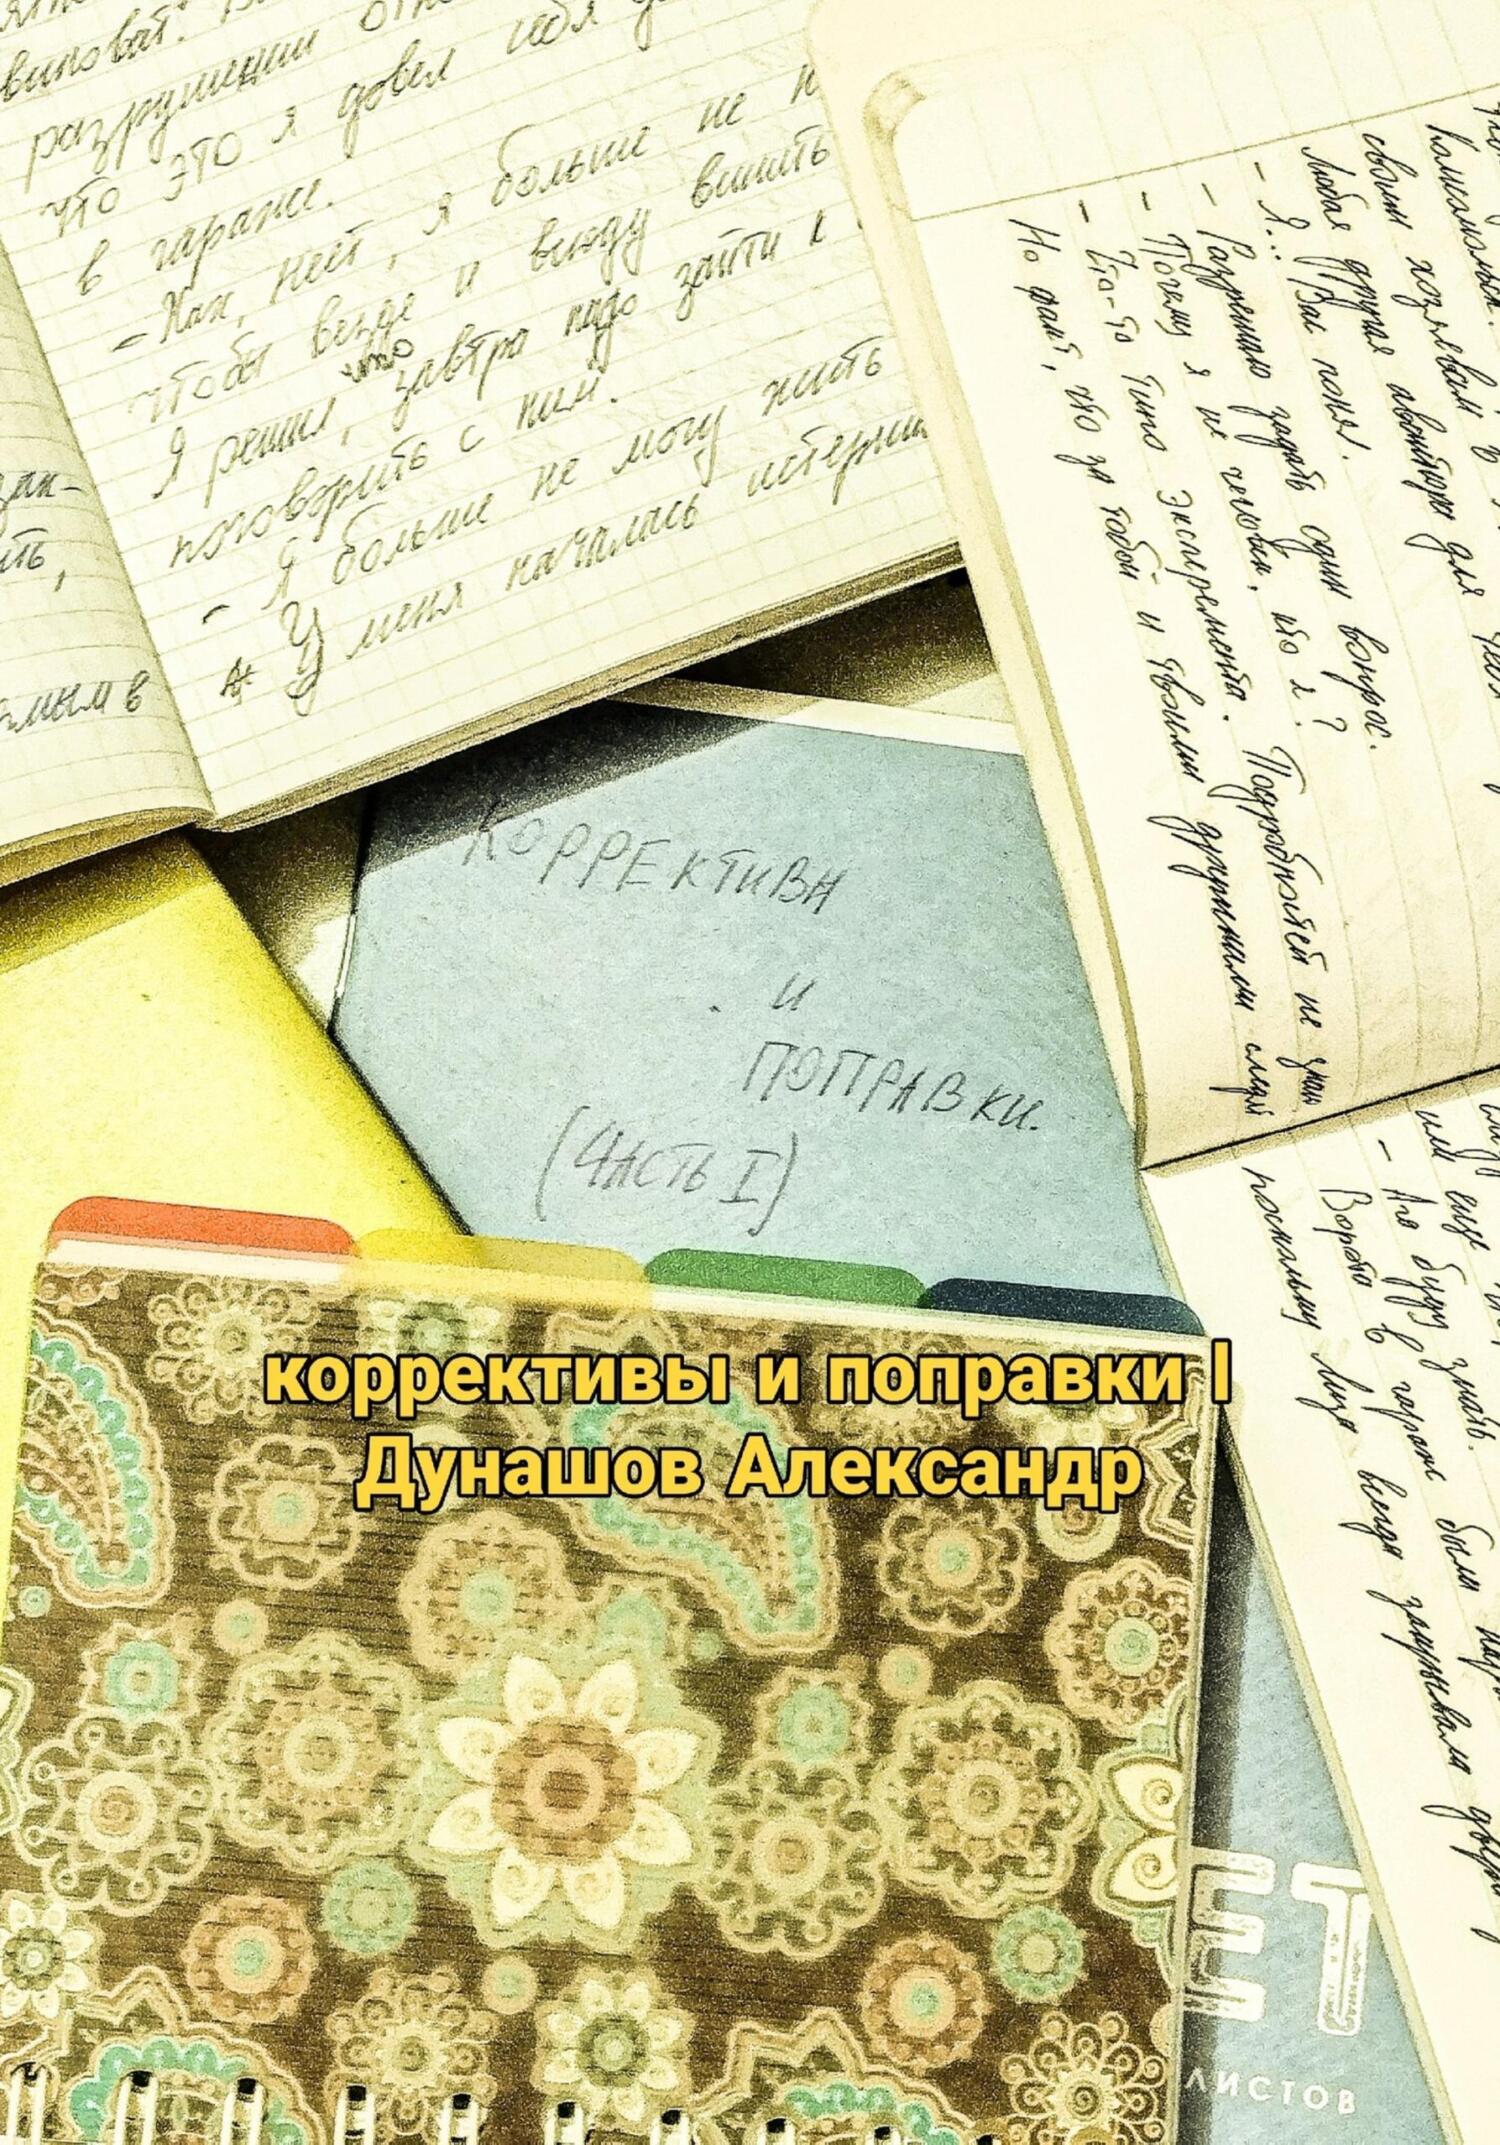 виноват.
разрушении
что это я довёл себя
в гараже.
- Как, нет, я больше не
чтобы везде и всюду винить
Я решил, что завтра надо зайти к
поговорить с ним.
- Я больше не могу жить
У меня начались
зак-
ить,
мым в
своим хозяевам в
Любая другая авантюра для
- Я... Вас понял.
- Разрешаю задать один вопрос.
- Почему я не человек, кто я?
- Что-то типа эксперимента. Подробностей не знаю
Но факт, что за тобой и твоими другими следя
КОРРЕКТИВЫ
И
ПОПРАВКИ.
(ЧАСТЬ I)
или ещё
- Ага буду знать.
Ворота в гараж были
поскольку Лиза всегда закрывала двери
коррективы и поправки I
Дунашов Александр
ЕТ
ЛИСТОВ